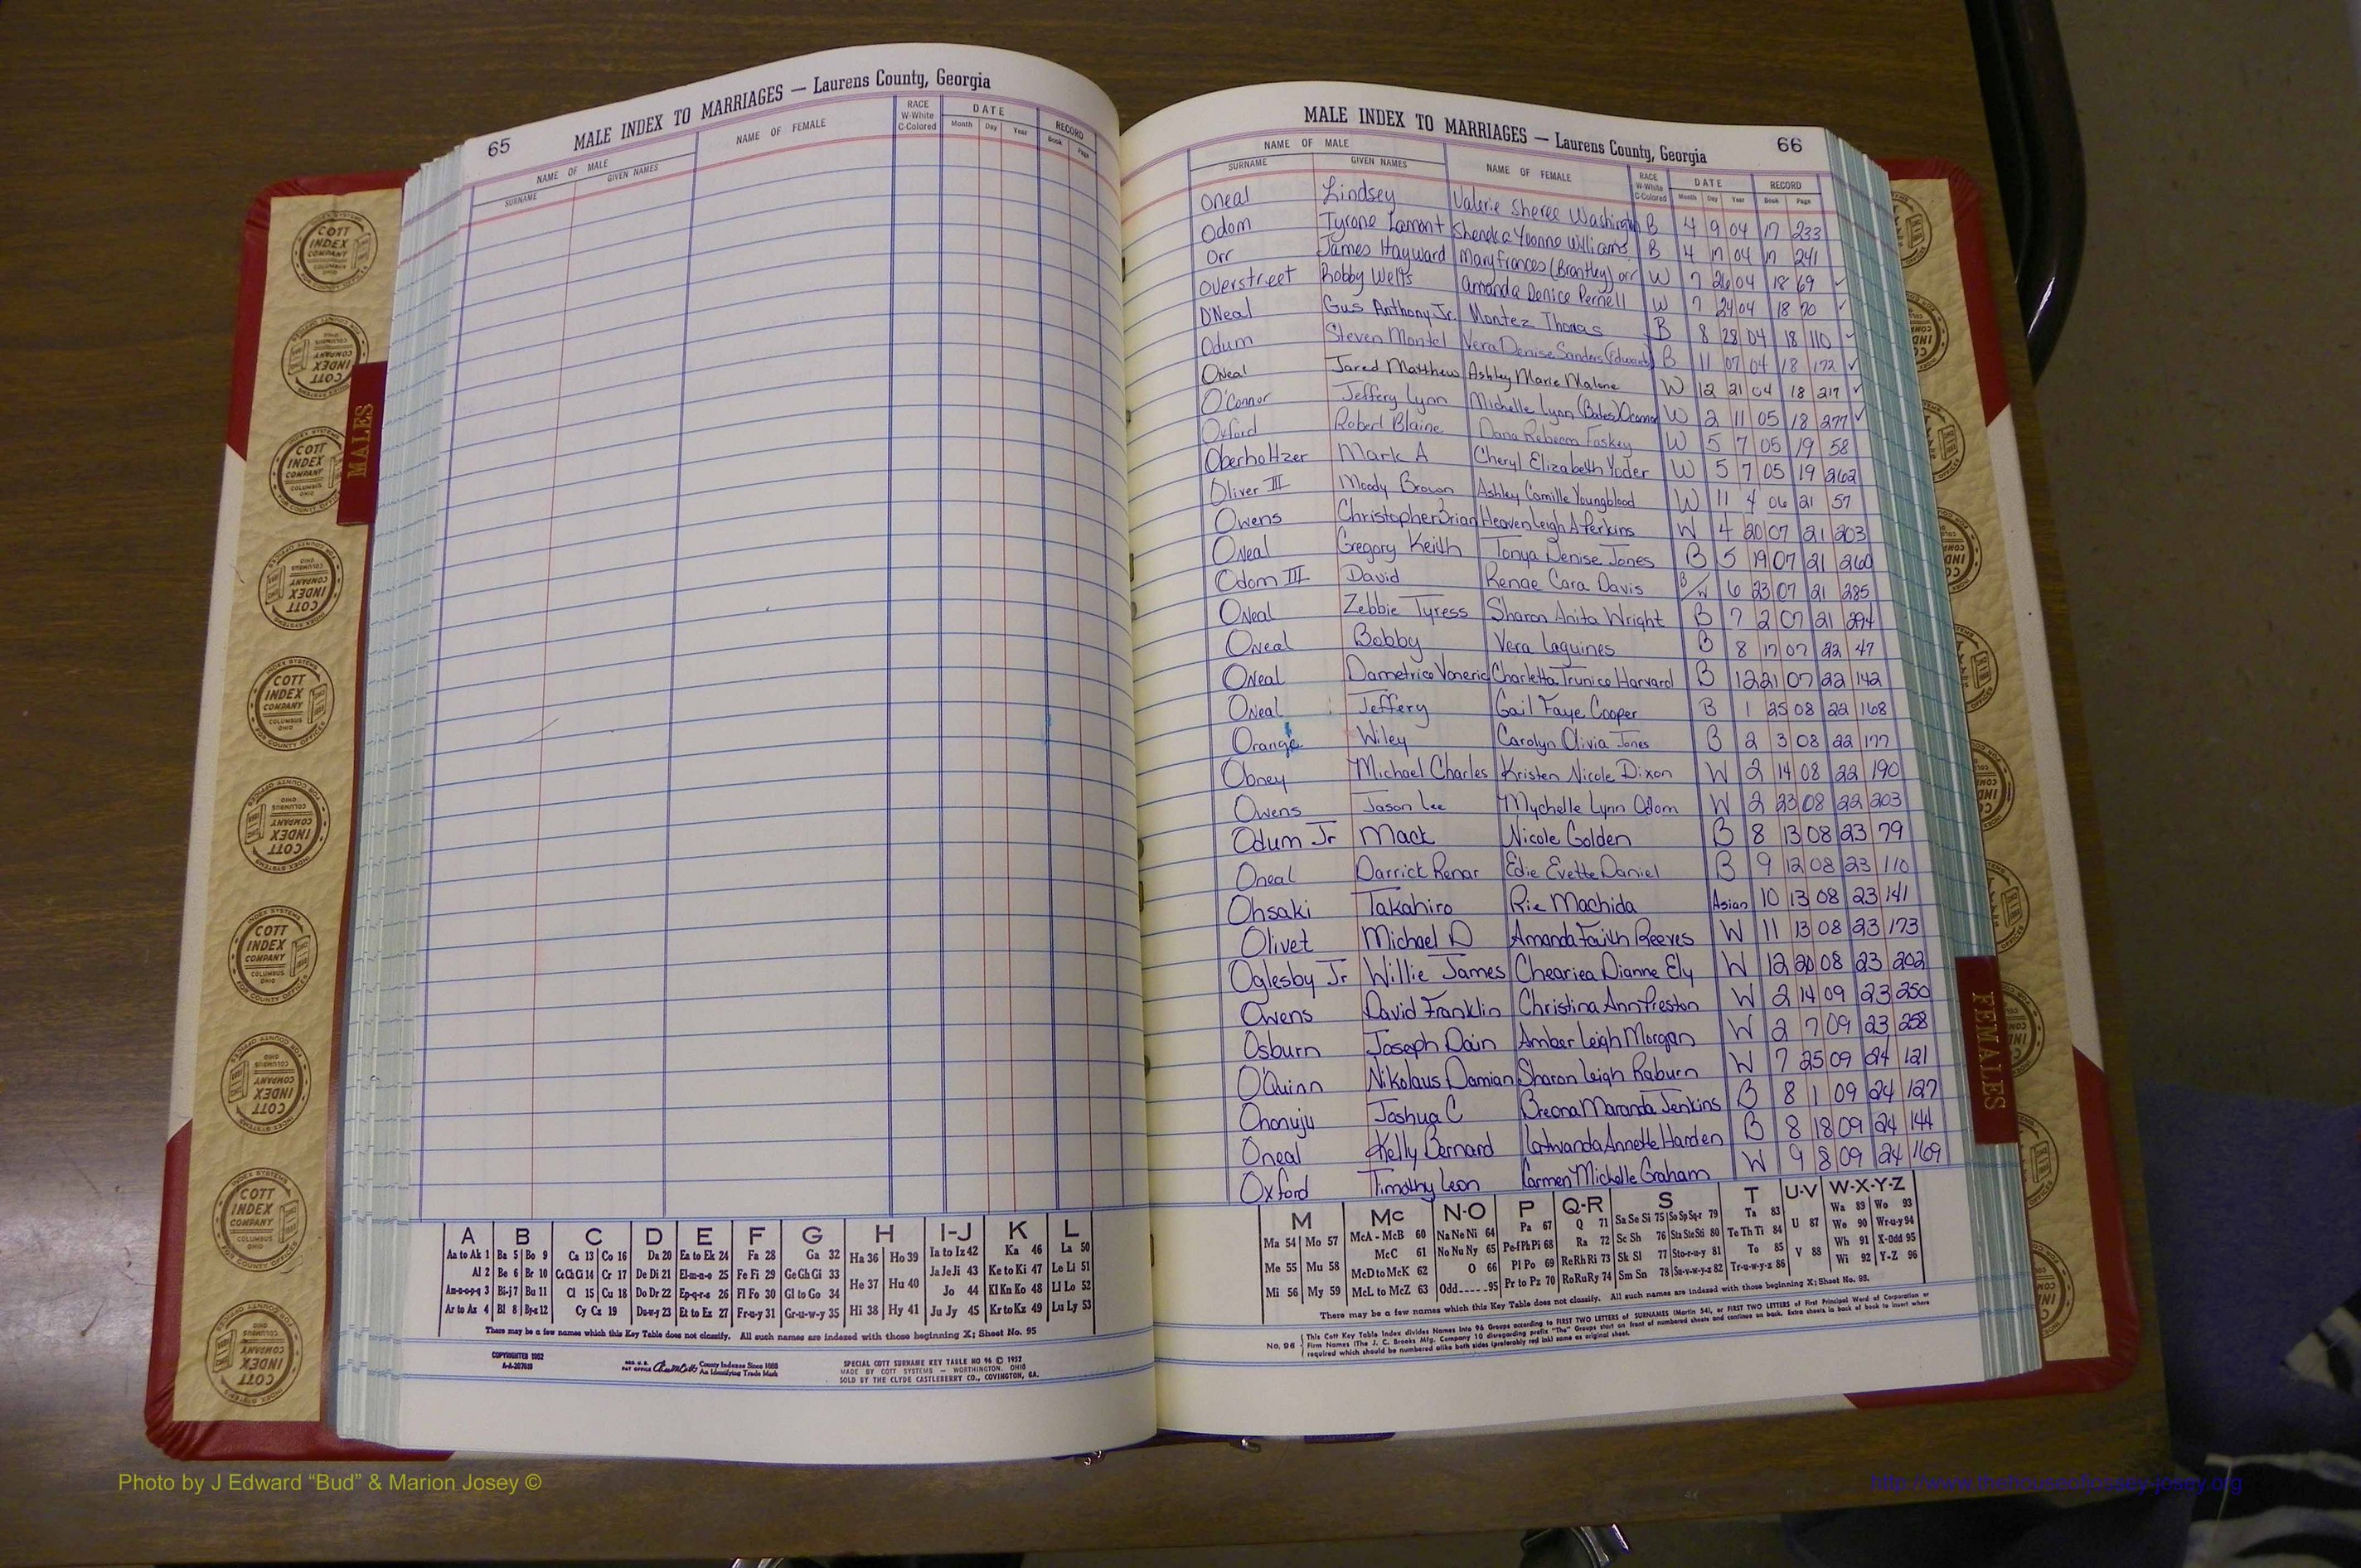 65 MALE INDEX TO MARRIAGES — Laurens County, Georgia
NAME OF MALE NAME OF FEMALE RACE W-White C-Colored DATE RECORD
SURNAME GIVEN NAMES Month Day Year Book Page
66 MALE INDEX TO MARRIAGES — Laurens County, Georgia
NAME OF MALE NAME OF FEMALE RACE W-White C-Colored DATE RECORD
SURNAME GIVEN NAMES Month Day Year Book Page
Oneal Lindsey Valerie Sheree B 4 9 04 17 233
Odom Tyrone Lamont Yvonne Williams B 4 17 04 17 241
Orr James Hayward Mary Frances (Brantley) Orr W 7 26 04 18 69
Overstreet Bobby Wells Amanda Denice Pernell W 7 24 04 18 70
O'Neal Gus Anthony Jr. Montez Thomas B 8 28 04 18 110
Odum Steven Montel Vera Denise Sanders (Edwards) B 11 07 04 18 172
ONeal Jared Matthew Ashley Marie Malone W 12 21 04 18 217
O'Connor Jeffery Lynn Michelle Lynn (Bates) Oconnor W 2 11 05 18 277
Oxford Robert Blaine Dana Rebecca Faskey W 5 7 05 19 58
Oberholtzer Mark A Cheryl Elizabeth Yoder W 5 7 05 19 262
Oliver III Moody Brown Ashley Camille Youngblood W 11 4 06 21 57
Owens Christopher Brian Heaven Leigh A Perkins W 4 20 07 21 203
ONeal Gregory Keith Tonya Denise Jones B 5 19 07 21 260
Odom III David Renae Cara Davis B/W 6 23 07 21 285
ONeal Zebbie Tyress Sharon Anita Wright B 7 2 07 21 294
Oneal Bobby Vera Laguines B 8 17 07 22 47
ONeal Dametrice Vaneric Charletta Trunice Harvard B 12 21 07 22 142
ONeal Jeffery Gail Faye Cooper B 1 25 08 22 168
Orange Wiley Carolyn Olivia Jones B 2 3 08 22 177
Obney Michael Charles Kristen Nicole Dixon W 2 14 08 22 190
Owens Jason Lee Mychelle Lynn Odom W 2 23 08 22 203
Odum Jr Mack Nicole Golden B 8 13 08 23 79
Oneal Darrick Renar Edie Evette Daniel B 9 12 08 23 110
Ohsaki Takahiro Rie Machida Asian 10 13 08 23 141
Olivet Michael D Amanda Faith Reeves W 11 13 08 23 173
Oglesby Jr Willie James Cheariea Dianne Ely W 12 20 08 23 202
Owens David Franklin Christina Ann Preston W 2 14 09 23 250
Osburn Joseph Dain Amber Leigh Morgan W 2 7 09 23 258
O'Quinn Nikolaus Damian Sharon Leigh Raburn W 7 25 09 24 121
Ohonuju Joshua C Breona Maranda Jenkins B 8 1 09 24 127
Oneal Kelly Bernard Latwanda Annette Harden B 8 18 09 24 144
Oxford Timothy Leon Carmen Michelle Graham W 9 8 09 24 169
A B C D E F G H I-J K L
Aa to Ak 1 Ba 5 Bo 9 Ca 13 Co 16 Da 20 Ea to Ek 24 Fa 28 Ga 32 Ha 36 Ho 39 Ia to Iz 42 Ka 46 La 50
Al 2 Be 6 Br 10 Ce Ch Ci 14 Cr 17 De Di 21 El-m-n-o 25 Fe Fi 29 Ge Gh Gi 33 He 37 Hu 40 Ja Je Ji 43 Ke to Ki 47 Le Li 51
Am-n-o-p-q 3 Bi-j 7 Bu 11 Cl 15 Cu 18 Do Dr 22 Ep-q-r-s 26 Fl Fo 30 Gl to Go 34 Jo 44 Kl Kn Ko 48 Ll Lo 52
Ar to Az 4 Bl 8 By-z 12 Cy Cz 19 Du-w-y 23 Et to Ez 27 Fr-u-y 31 Gr-u-w-y 35 Hi 38 Hy 41 Ju Jy 45 Kr to Kz 49 Lu Ly 53
There may be a few names which this Key Table does not classify. All such names are indexed with those beginning X; Sheet No. 95
COPYRIGHTED 1952
County Indexes Since 1888
An Identifying Trade Mark
SPECIAL COTT SURNAME KEY TABLE NO 96 © 1952
MADE BY COTT SYSTEMS — WORTHINGTON, OHIO
SOLD BY THE CLYDE CASTLEBERRY CO., COVINGTON, GA.
M Mc N-O P Q-R S T U-V W-X-Y-Z
Ma 54 Mo 57 McA - McB 60 Na Ne Ni 64 Pa 67 Q 71 Sa Se Si 75 So Sp Sq-r 79 Ta 83 U 87 Wa 89 Wo 93
Me 55 Mu 58 McC 61 No Nu Ny 65 Pe-f Ph Pi 68 Ra 72 Sc Sh 76 Sta Ste Sti 80 Te Th Ti 84 We 90 Wr-u-y 94
McD to McK 62 O 66 Pl Po 69 Re Rh Ri 73 Sk Sl 77 Sto-r-u-y 81 To 85 V 88 Wh 91 X-Odd 95
Mi 56 My 59 McL to McZ 63 Odd 95 Pr to Pz 70 Ro Ru Ry 74 Sm Sn 78 Su-v-w-y-z 82 Tr-u-w-y-z 86 Wi 92 Y-Z 96
There may be a few names which this Key Table does not classify. All such names are indexed with those beginning X; Sheet No. 95.
No. 96 This Cott Key Table Index divides Names into 96 Groups according to FIRST TWO LETTERS of SURNAMES (Martin 54), or FIRST TWO LETTERS of First Principal Word of Corporation or
Firm Names (The J. C. Brooks Mfg. Company 10 disregarding prefix "The" Groups start on front of numbered sheets and continue on back. Extra sheets in back of book to insert where
required which should be numbered alike both sides (preferably red ink) same as original sheet.
MALES
FEMALES
COTT INDEX COMPANY COLUMBUS OHIO
INDEX SYSTEMS FOR COUNTY OFFICES
Photo by J Edward “Bud” & Marion Josey ©